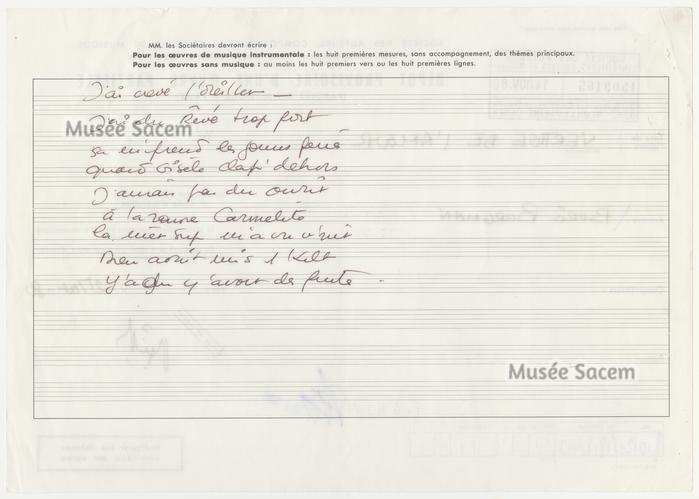 MM. les Sociétaires devront écrire :
Pour les œuvres de musique instrumentale : les huit premières mesures, sans accompagnement, des thèmes principaux.
Pour les œuvres sans musique : au moins les huit premiers vers ou les huit premières lignes.
J'ai crevé l'oreiller
J'ai du Rêvé trop fort
Musée Sacem
ça m'prend les jours feriés
quand Gisèle clap' dehors
J'aurais pas du ouvrir
à la Carmelite
la mère sup m'a vu v'nir
Dieu avait mis 1 Kilt
Y'a du y'avoir des fuites.
Musée Sacem